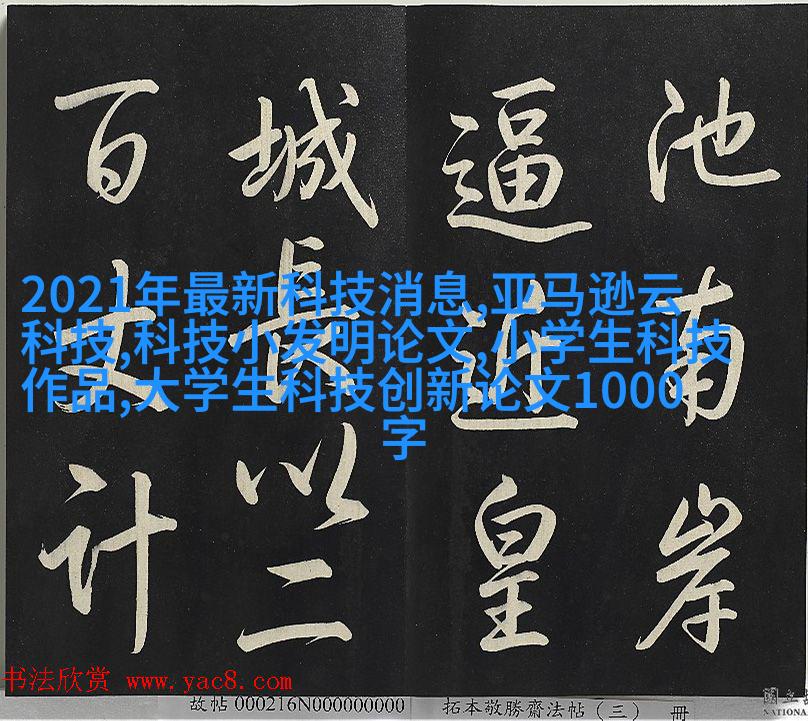 池南岸
逼近皇
城長以二
百丈計
2021年最新科技消息,亚马逊云
科技,科技小发明论文,小学生科技
作品,大学生科技创新论文1000
字
书法欣赏 www.yac8.com
故帖 000216N000000000 拓本敬勝齋法帖（三） 冊
國立
NATIONA